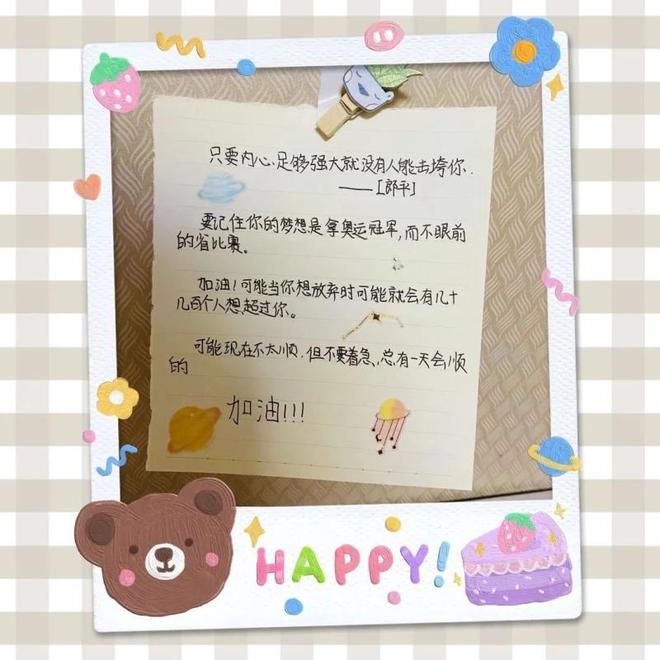 只要内心足够强大就没有人能击垮你.
——[郎平]
要记住你的梦想是拿奥运冠军,而不眼前
的省比赛。
加油!可能当你想放弃时可能就会有几十
几百个人想超过你。
可能现在不太顺.但不要着急、总有一天会顺
的
加油!!!
HAPPY!